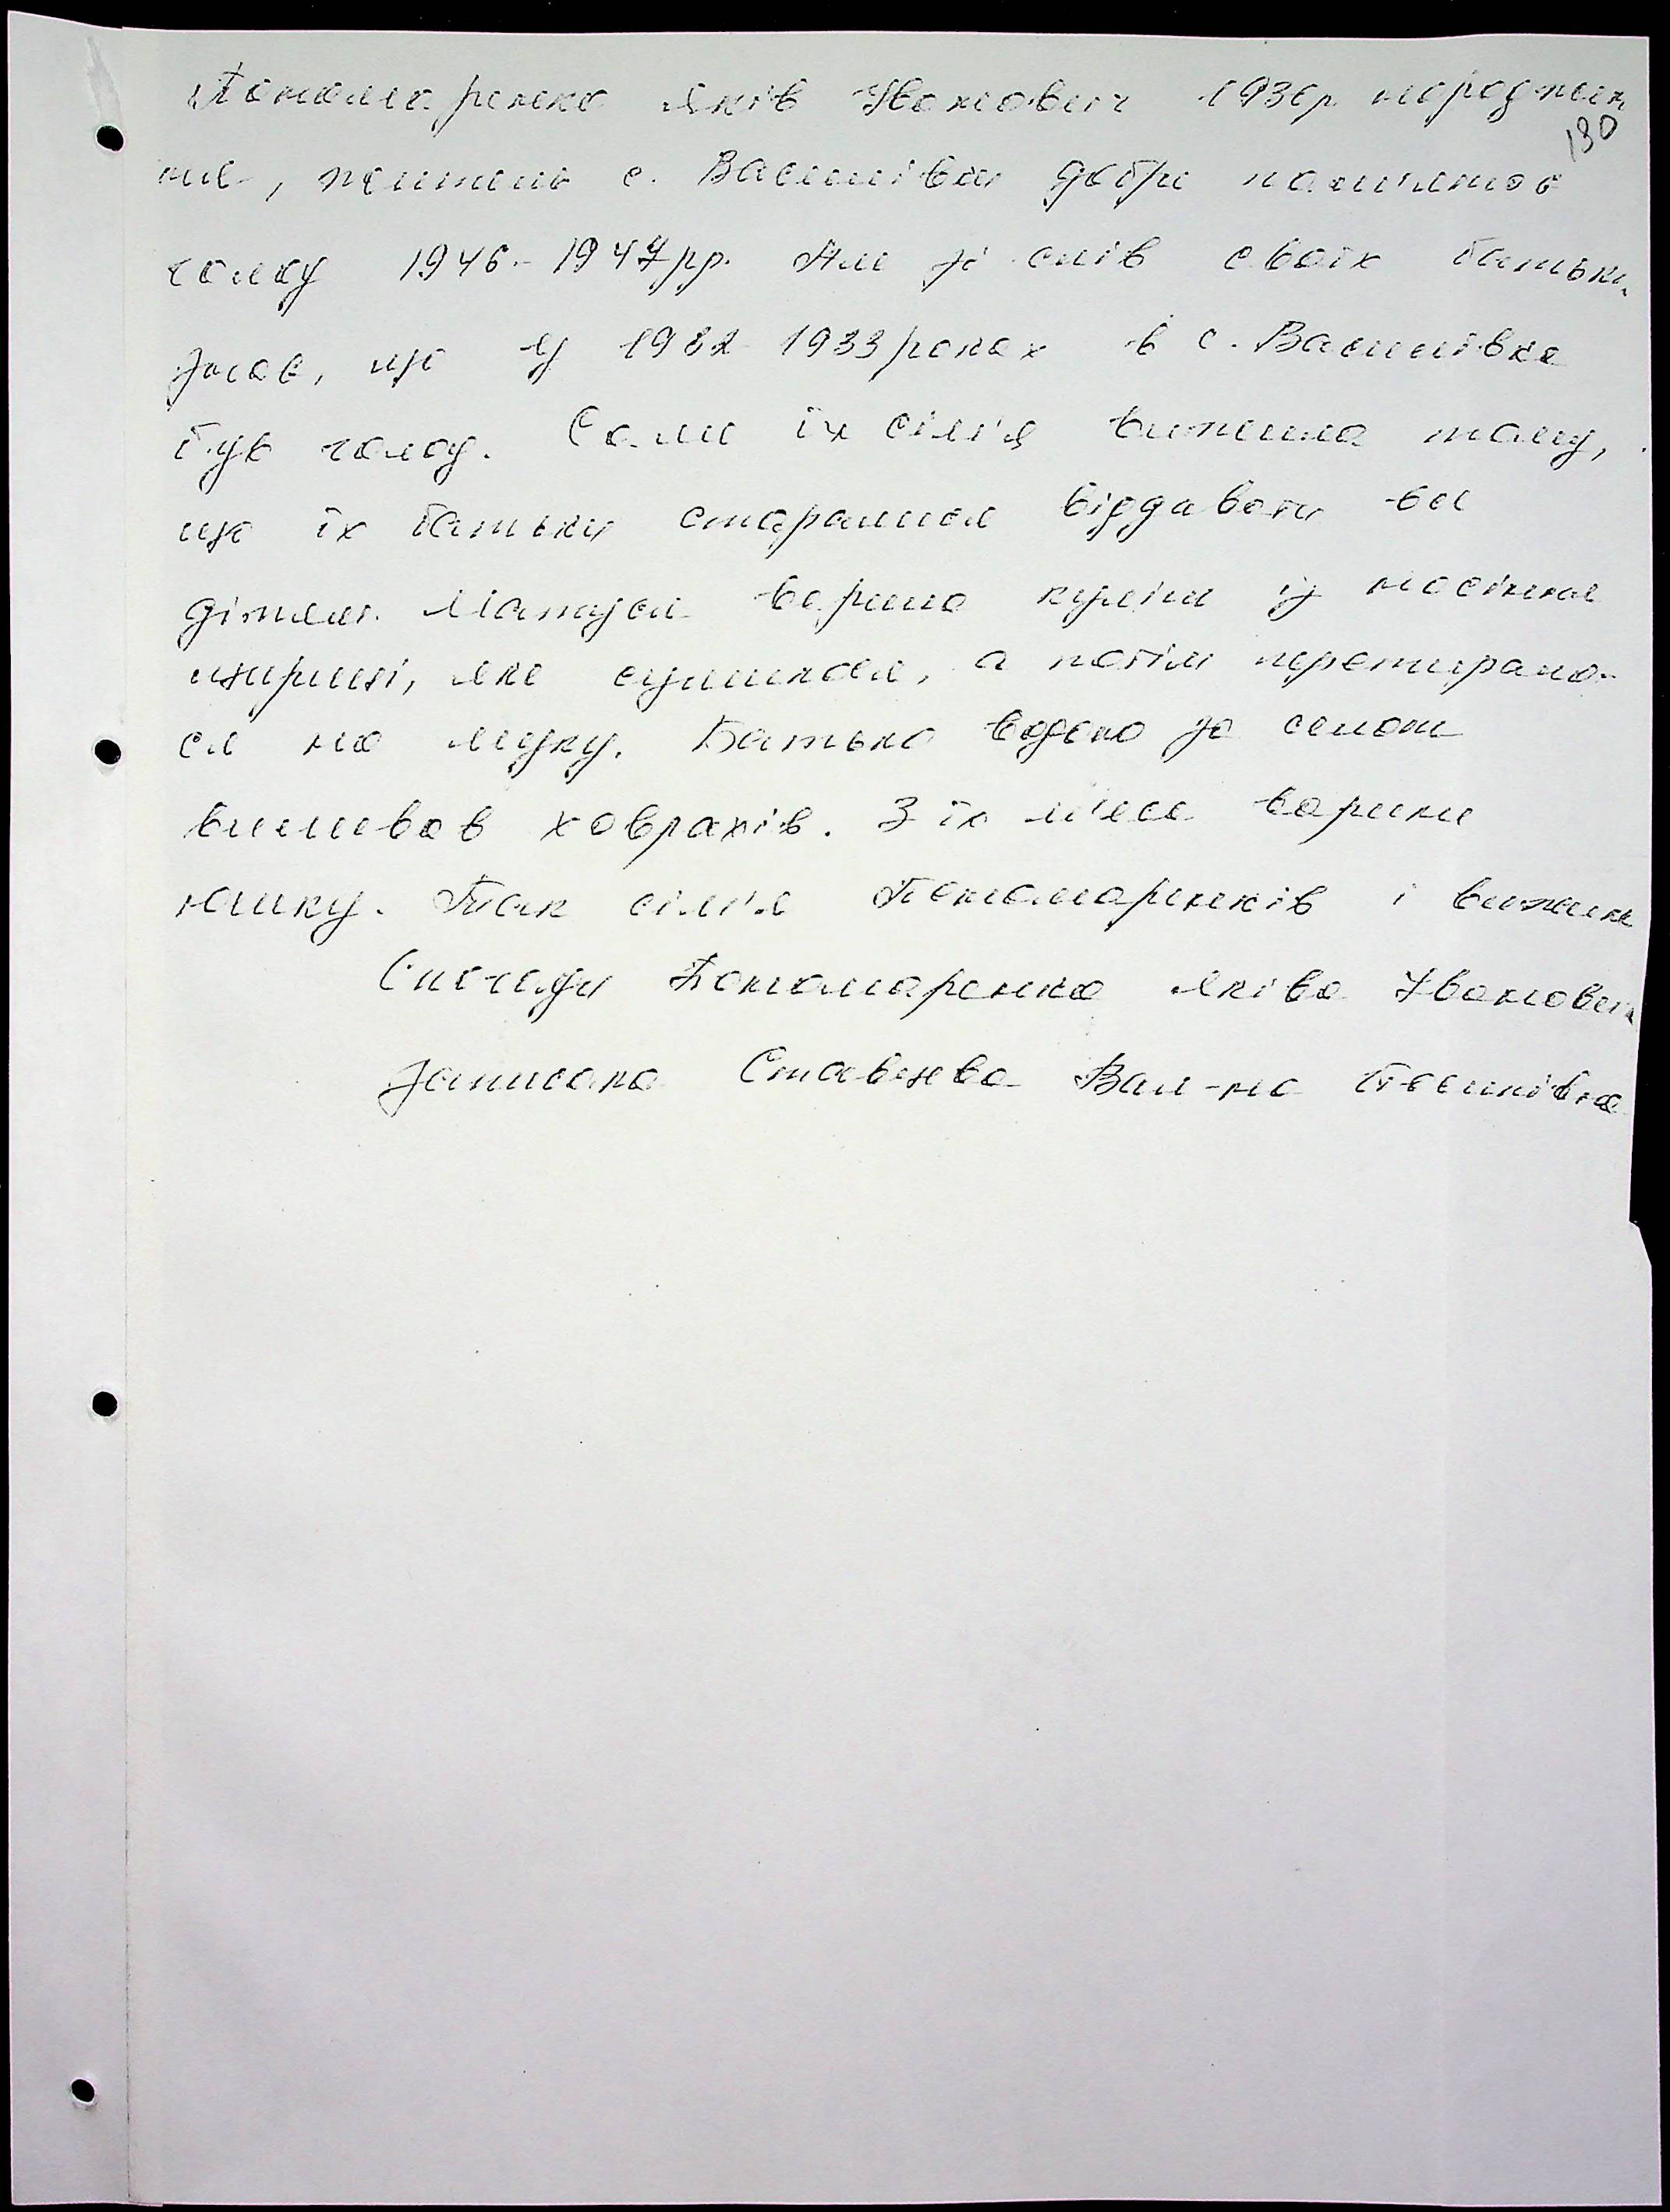 Пономаренко Яків Іванович 1930р народжен
180
ня, житель с. Василівки добре пам'ятає
голод 1946-1947рр. Але зі слів своїх батьків
знає, що у 1932-1933 роках в с. Василівка
був голод. Сами їх сім'я вижила тому,
що їх батьки старалися віддавати все
дітям. Матуся варила куліш із насіння
щириці, яке сушилося, а потім перетирало-
ся на муку. Батько водою за селом
виливав ховрахів. З їх м'яса варили
юшку. Так сім'я Пономаренків і вижила
Спогади Пономаренка Яківа Івановича
записала Вал-на